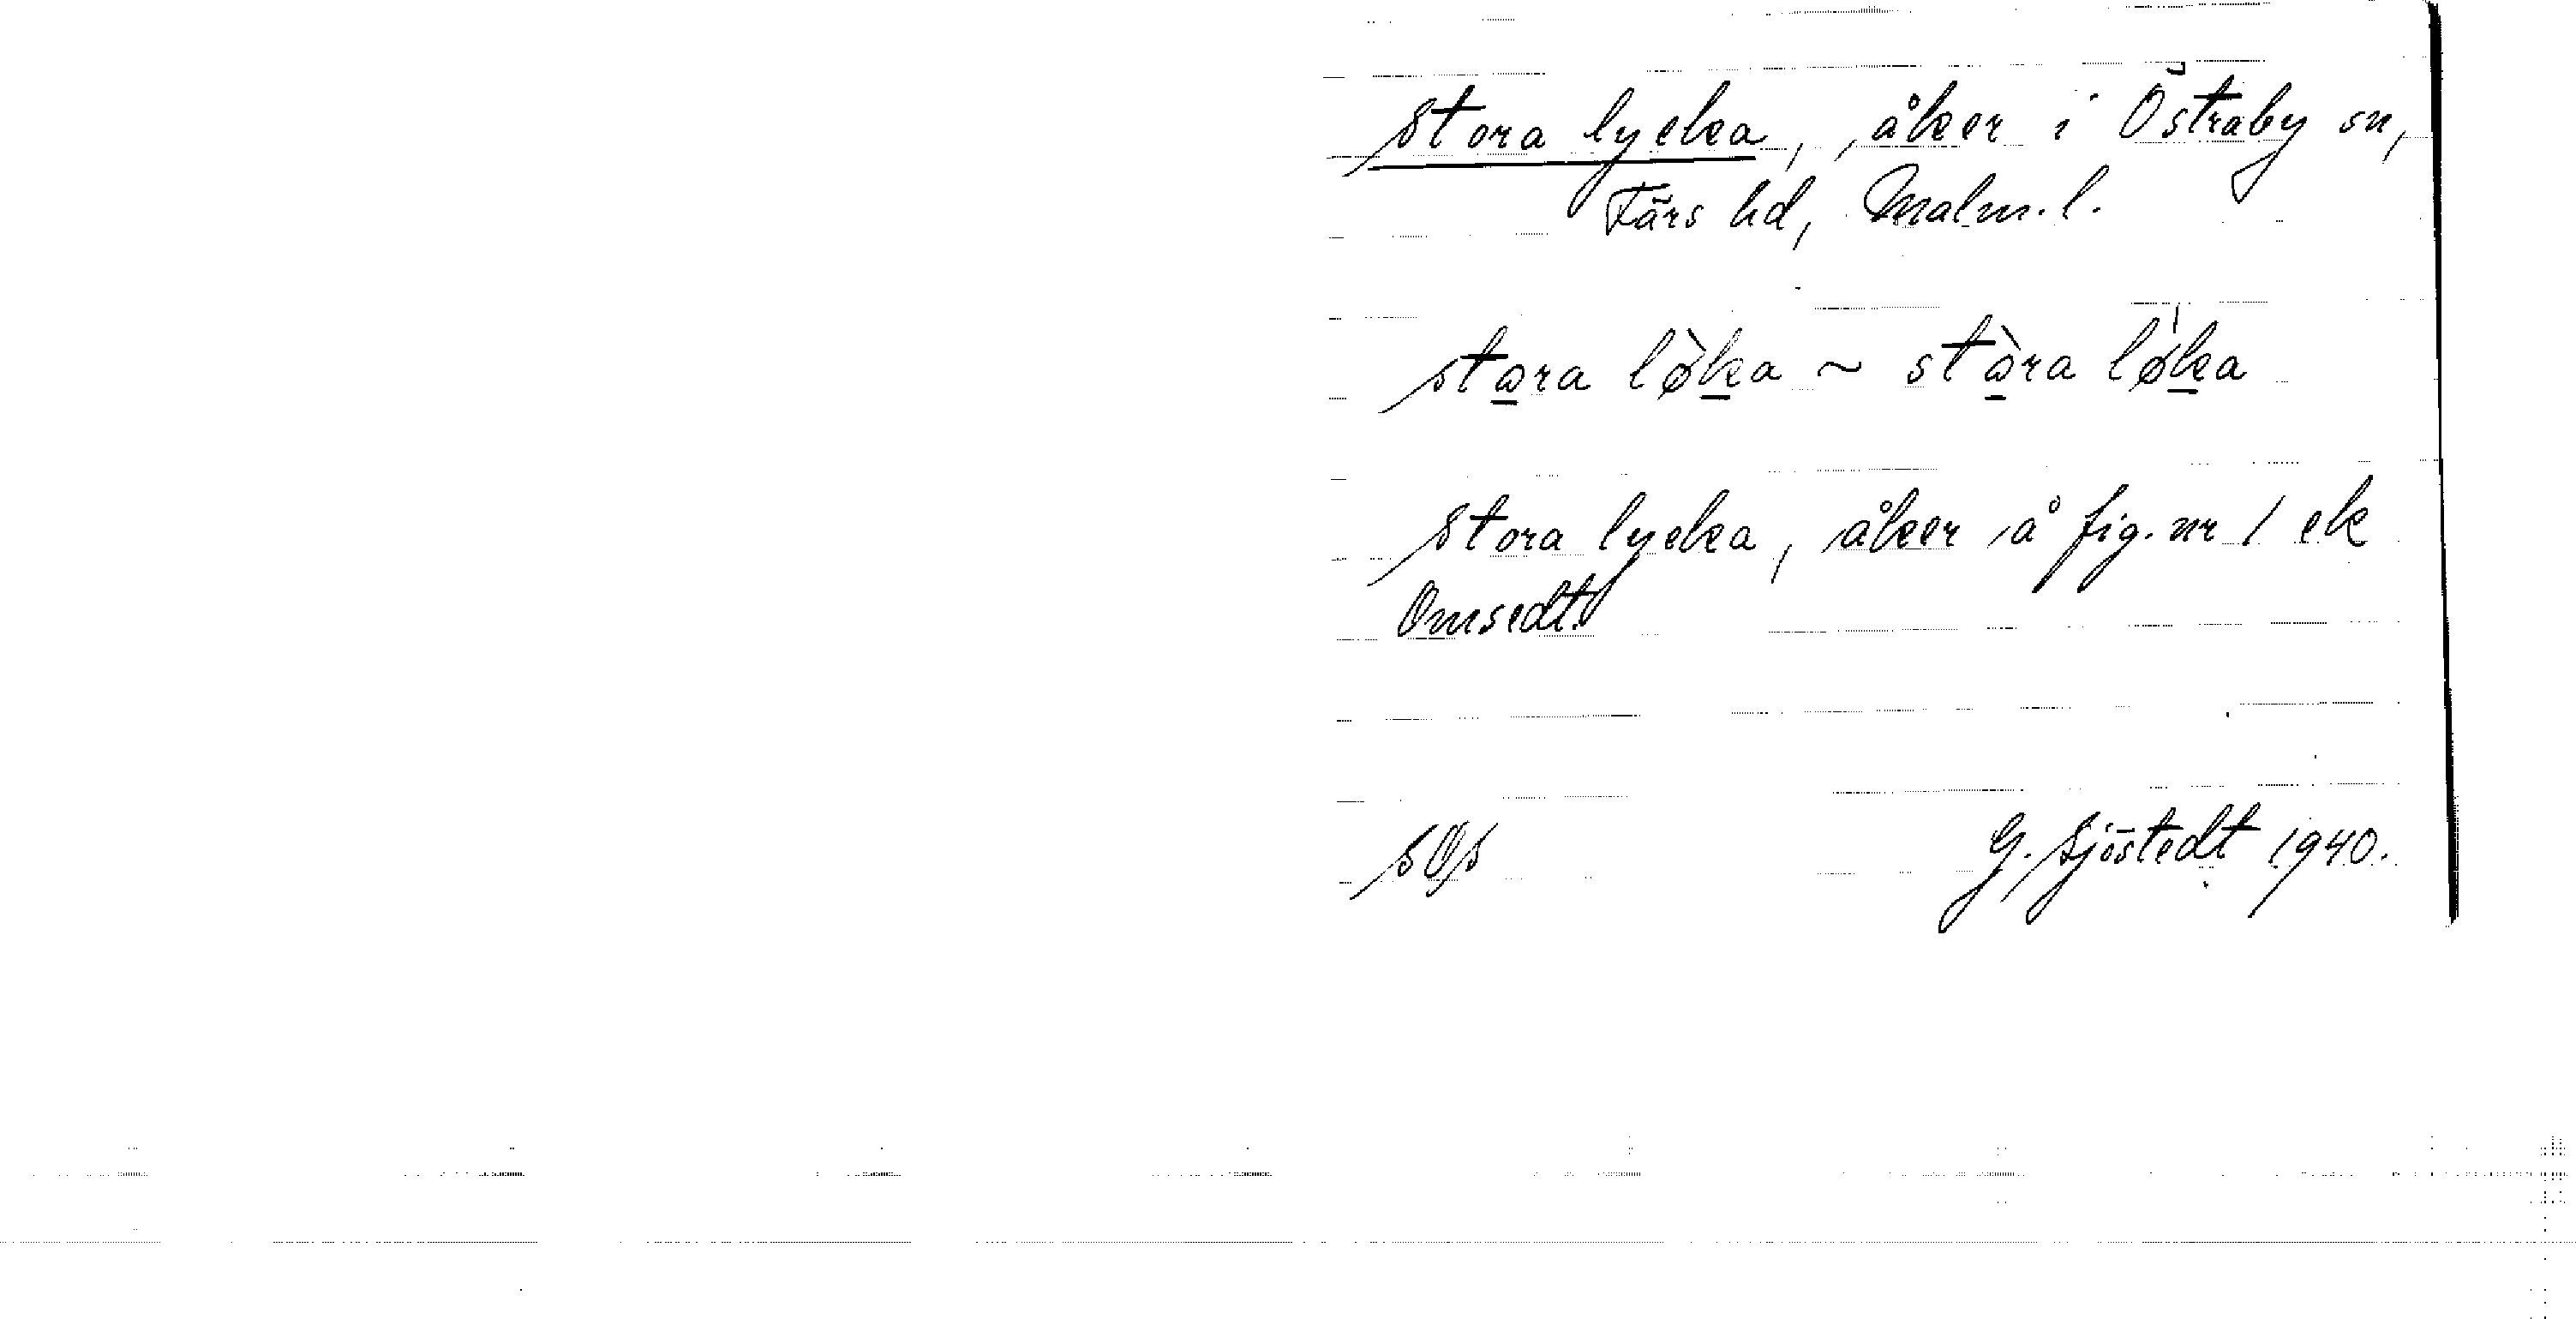 Stora lycka, åker i Östraby sn,
Färs hd, Malm. l.
stɷra lø̀ka ~ stɷ̀ra lø̍ka
Stora lycka, åker å fig. nr 1 ek
Omsedt.
sOs
G. Sjöstedt 1940.